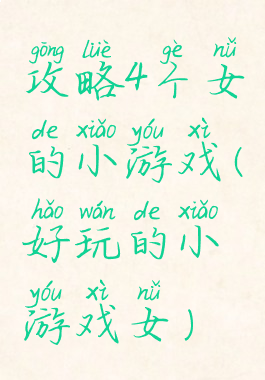 gōng lüè gè nǚ
攻略4个女
de xiǎo yóu xì
的小游戏(
hǎo wán de xiǎo
好玩的小
yóu xì nǚ
游戏女)